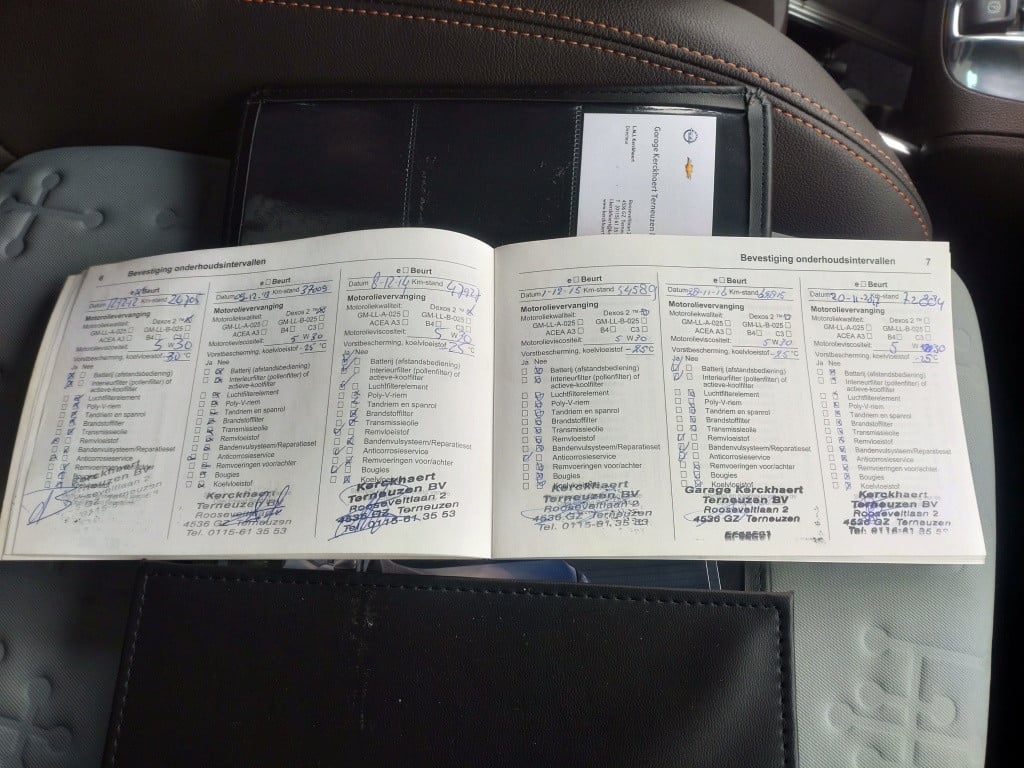 Garage Kerckhaert Terneuzen
Directeur
6
Bevestiging onderhoudsintervallen
Beurt
Datum 12-12-12 Km-stand 26705
Motorolievervanging
Motoroliekwaliteit: Dexos 2 ™
GM-LL-A-025 GM-LL-B-025
ACEA A3 B4 C3
Motorolieviscositeit: 5 W 30
Vorstbescherming, koelvloeistof -30 °C
Ja Nee
Batterij (afstandsbediening)
Interieurfilter (pollenfilter) of
actieve-koolfilter
Luchtfilterelement
Poly-V-riem
Tandriem en spanrol
Brandstoffilter
Transmissieolie
Remvloeistof
Bandenvulsysteem/Reparatieset
Anticorrosieservice
e Beurt
Datum Km-stand 37009
Motorolievervanging
Motoroliekwaliteit: Dexos 2 ™
GM-LL-A-025 GM-LL-B-025
ACEA A3 B4 C3
Motorolieviscositeit: 5 W 30
Vorstbescherming, koelvloeistof -25 °C
Ja Nee
Batterij (afstandsbediening)
Interieurfilter (pollenfilter) of
actieve-koolfilter
Luchtfilterelement
Poly-V-riem
Tandriem en spanrol
Brandstoffilter
Transmissieolie
Remvloeistof
Bandenvulsysteem/Reparatieset
Anticorrosieservice
Remvoeringen voor/achter
Bougies
Koelvloeistof
Kerckhaert
Terneuzen BV
Rooseveltlaan 2
4536 GZ Terneuzen
Tel. 0115-61 35 53
e Beurt
Datum 8-12-14 Km-stand 47927
Motorolievervanging
Motoroliekwaliteit: Dexos 2 ™
GM-LL-A-025 GM-LL-B-025
ACEA A3 B4 C3
Motorolieviscositeit: 5 W 30
Vorstbescherming, koelvloeistof -25 °C
Ja Nee
Batterij (afstandsbediening)
Interieurfilter (pollenfilter) of
actieve-koolfilter
Luchtfilterelement
Poly-V-riem
Tandriem en spanrol
Brandstoffilter
Transmissieolie
Remvloeistof
Bandenvulsysteem/Reparatieset
Anticorrosieservice
Remvoeringen voor/achter
Bougies
Koelvloeistof
Kerckhaert
Terneuzen BV
Rooseveltlaan 2
4536 GZ Terneuzen
Tel. 0115-61 35 53
Bevestiging onderhoudsintervallen
7
e Beurt
Datum 1-12-15 Km-stand 54589
Motorolievervanging
Motoroliekwaliteit: Dexos 2 ™
GM-LL-A-025 GM-LL-B-025
ACEA A3 B4 C3
Motorolieviscositeit: 5 W 30
Vorstbescherming, koelvloeistof -25 °C
Ja Nee
Batterij (afstandsbediening)
Interieurfilter (pollenfilter) of
actieve-koolfilter
Luchtfilterelement
Poly-V-riem
Tandriem en spanrol
Brandstoffilter
Transmissieolie
Remvloeistof
Bandenvulsysteem/Reparatieset
Anticorrosieservice
Remvoeringen voor/achter
Bougies
Kerckhaert
Terneuzen BV
Rooseveltlaan 2
4536 GZ Terneuzen
Tel. 0115-61 35 53
e Beurt
Datum 28-11-16 Km-stand
Motorolievervanging
Motoroliekwaliteit: Dexos 2 ™
GM-LL-A-025 GM-LL-B-025
ACEA A3 B4 C3
Motorolieviscositeit: 5 W 30
Vorstbescherming, koelvloeistof -25 °C
Ja Nee
Batterij (afstandsbediening)
Interieurfilter (pollenfilter) of
actieve-koolfilter
Luchtfilterelement
Poly-V-riem
Tandriem en spanrol
Brandstoffilter
Transmissieolie
Remvloeistof
Bandenvulsysteem/Reparatieset
Anticorrosieservice
Remvoeringen voor/achter
Bougies
Koelvloeistof
Garage Kerckhaert
Terneuzen BV
Rooseveltlaan 2
4536 GZ Terneuzen
e Beurt
Datum Km-stand
Motorolievervanging
Motoroliekwaliteit: Dexos 2 ™
GM-LL-A-025 GM-LL-B-025
ACEA A3 B4 C3
Motorolieviscositeit: 5 W 30
Vorstbescherming, koelvloeistof -25 °C
Ja Nee
Batterij (afstandsbediening)
Interieurfilter (pollenfilter) of
actieve-koolfilter
Luchtfilterelement
Poly-V-riem
Tandriem en spanrol
Brandstoffilter
Transmissieolie
Remvloeistof
Bandenvulsysteem/Reparatieset
Anticorrosieservice
Remvoeringen voor/achter
Bougies
Koelvloeistof
Kerckhaert
Terneuzen BV
Rooseveltlaan 2
4536 GZ Terneuzen
Tel. 0115-61 35 53